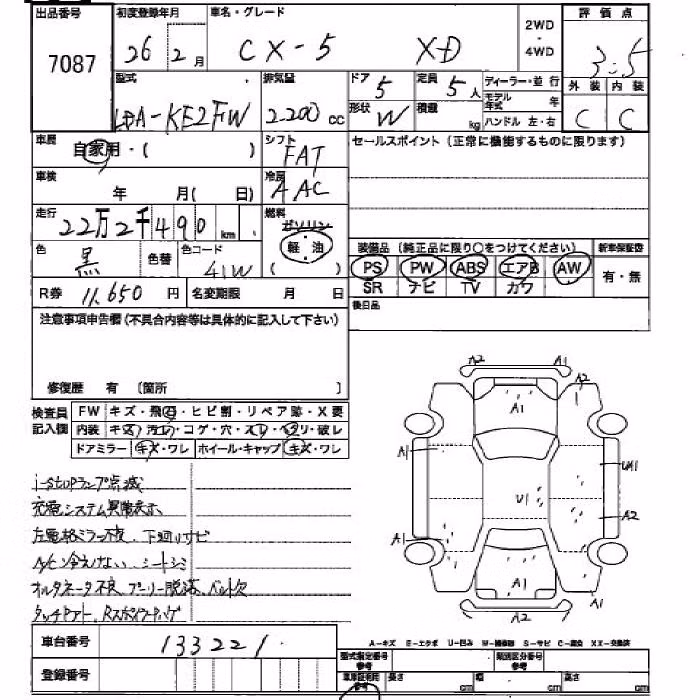 出品番号 初度登録年月 車名・グレード 2WD・4WD 評価点
7087 26 2月 CX-5 XD 3.5
型式 排気量 ドア 5 定員 5人 ディーラー・並行 外装 内装
LDA-KE2FW 2200cc 形状 W 積載 kg モデル年式 年 C C
ハンドル 左・右
車歴 自家用・( ) シフト FAT セールスポイント (正常に機能するものに限ります)
車検 年 月( 日) 冷房 AAC
走行 22万2千490km 燃料 ガソリン 軽・油 ( )
色 黒 色替 色コード 41W 装備品 (純正品に限り○をつけてください) 新車保証書
PS PW ABS エアB AW 有・無
R券 11,650円 名変期限 月 日 SR ナビ TV カワ
注意事項申告欄 (不具合内容等は具体的に記入して下さい) 後日品
修復歴 有 〔箇所 〕
検査員記入欄 FW キズ・飛石・ヒビ割・リペア跡・X要
内装 キズ・汚れ・コゲ・穴・スレ・ヘリ・破レ
ドアミラー キズ・ワレ ホイール・キャップ キズ・ワレ
A2 A1
A2
A1
A1 UA1
U1
A2
A1
A1
A1
A2
i-stopランプ点滅
充電システム異常表示
左電格ミラー不良、下廻りサビ
A/Cン冷えない、シートシミ
オルタネータ不良、プーリー脱落、ベルト欠
タッチアト、Rスポイラー
車台番号 133221
A-キズ E-エクボ U-凹み W-補修跡 S-サビ C-腐食 XX-交換済
登録番号 型式指定番号参考 類別区分番号参考
車庫証明用参考 長さ cm 幅 cm 高さ cm